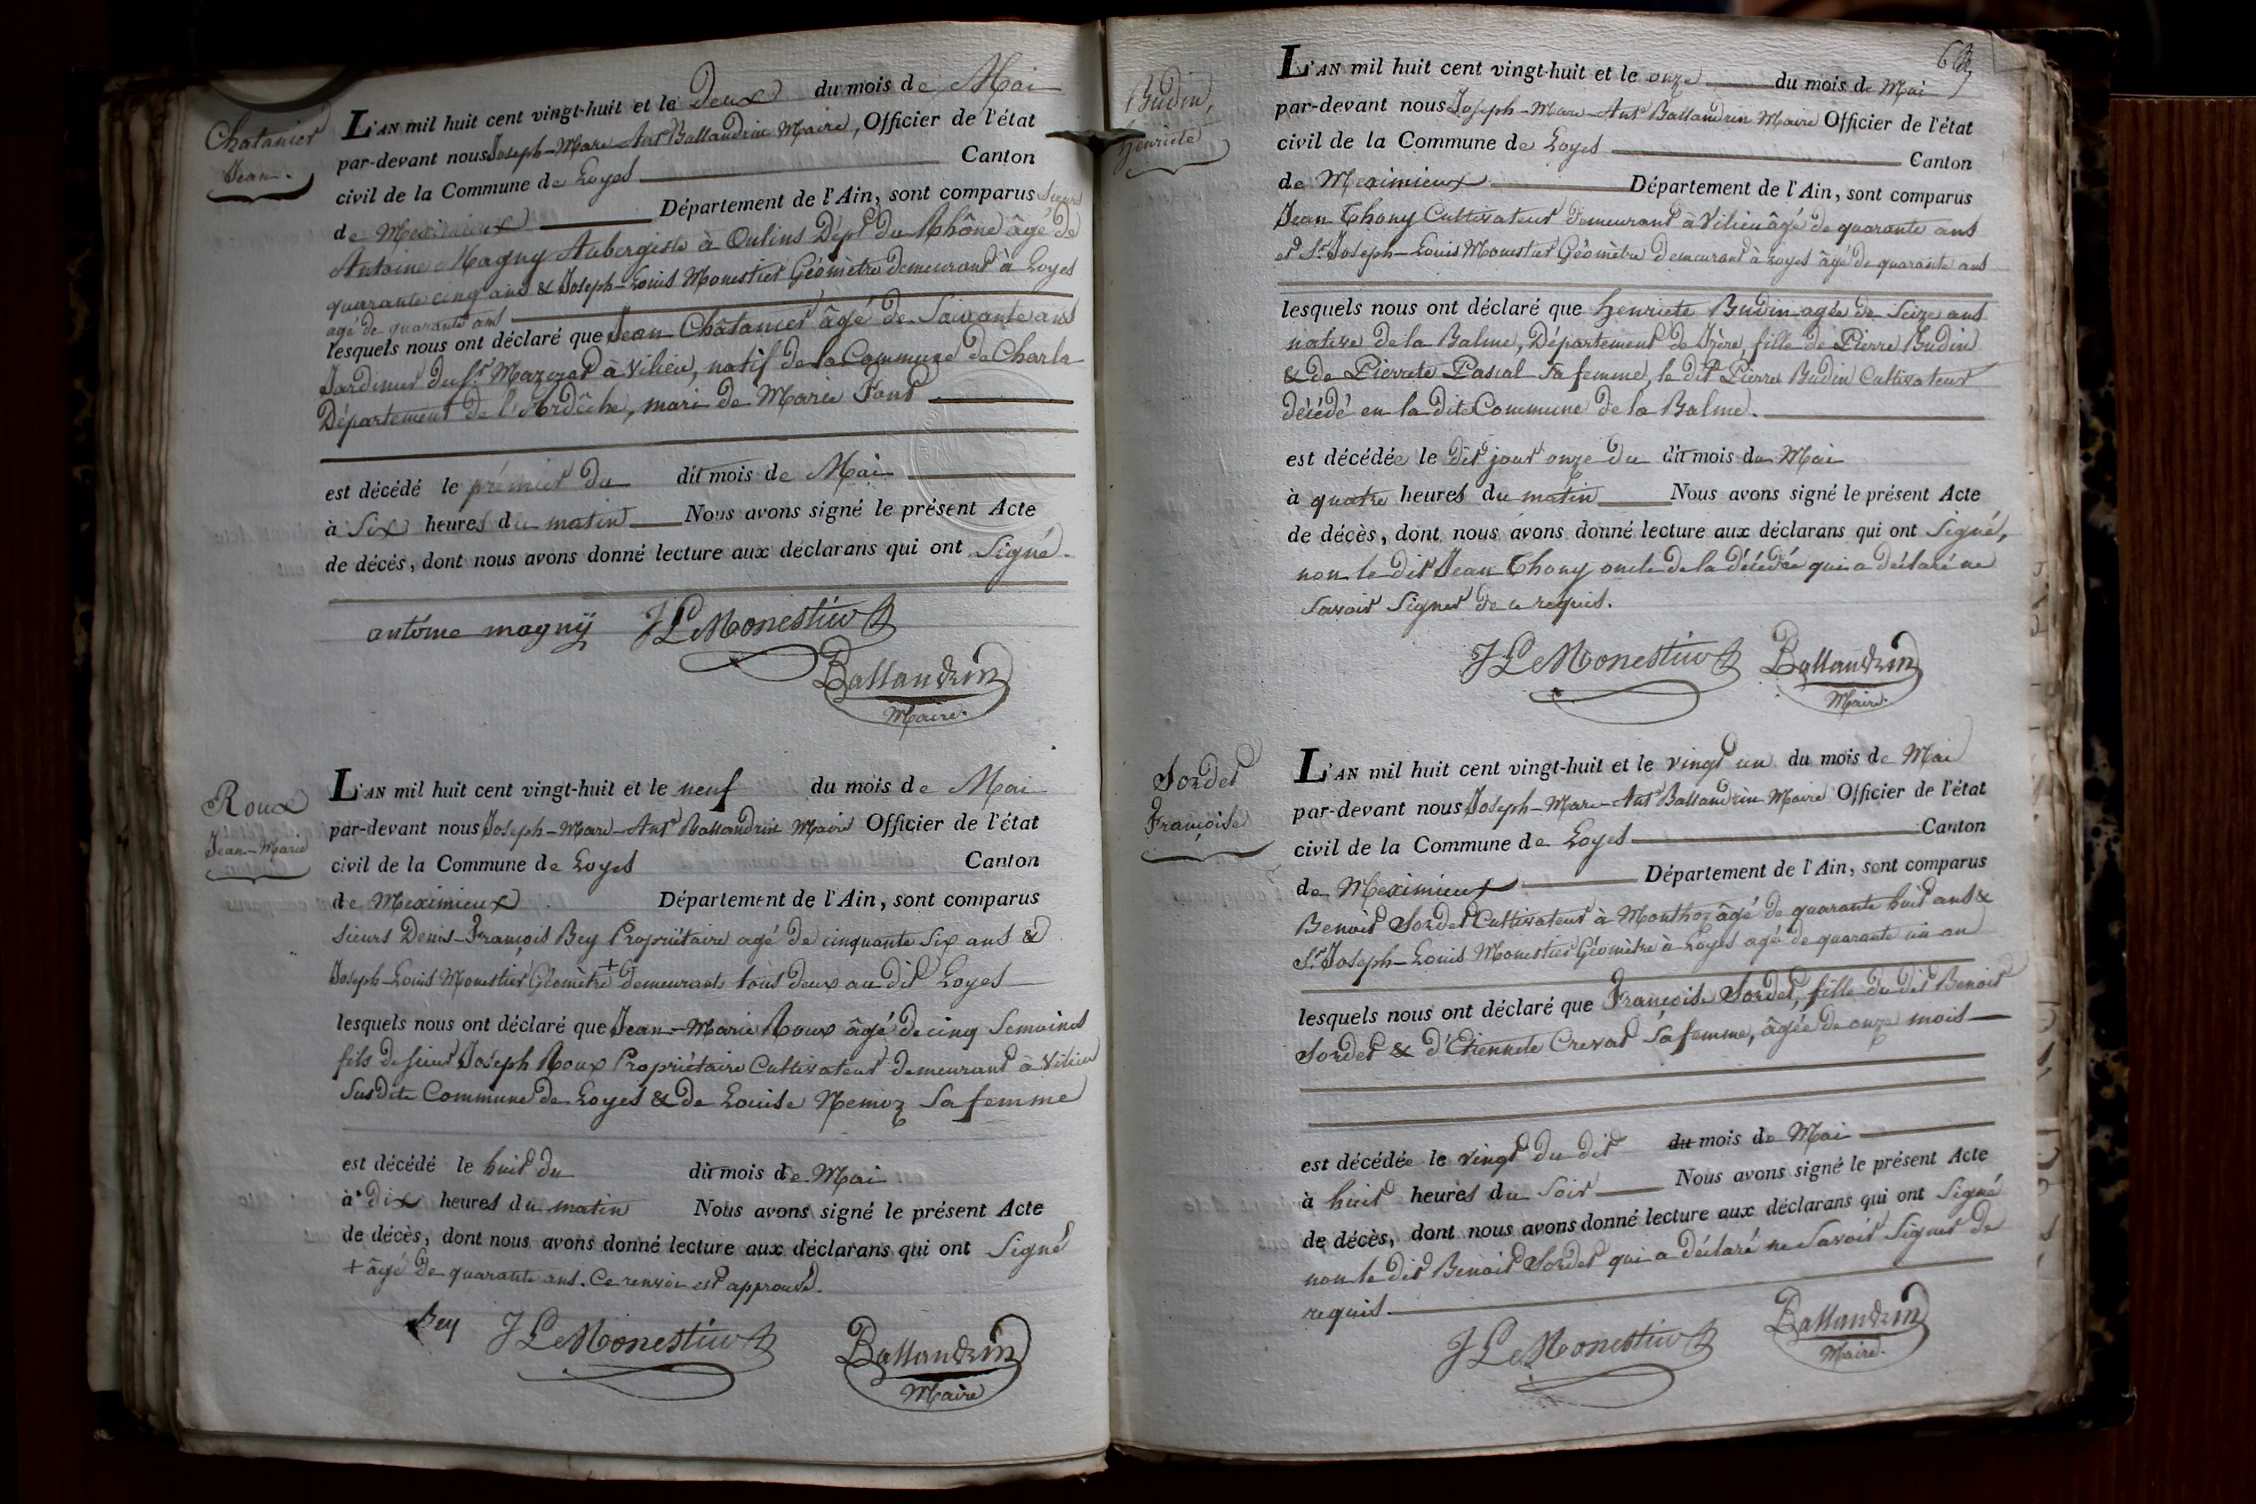 Chatanier
Jean.
L'AN mil huit cent vingt-huit et le Deux du mois de Mai
par-devant nous Joseph-Marie Ant Ballandrin Maire, Officier de l'état
civil de la Commune de Loyes Canton
de Meximieux Département de l'Ain, sont comparus Sieurs
Antoine Magny Aubergiste à Oulins Dépt du Rhône âgé de
quarante cinq ans & Joseph-Louis Monestier Géomètre demeurant à Loyes
agé de quarante ans
lesquels nous ont déclaré que Jean Châtanier âgé de Soixante ans
Jardinier du Sr Mazoyat à Vilieu, natif de la Commune de Charla
Département de l'Ardêche, mari de Marie Font
est décédé le prémier du dit mois de Mai
à Six heures du matin Nous avons signé le présent Acte
de décès, dont nous avons donné lecture aux déclarans qui ont Signé.
antóine magnÿ JLMonestier
Ballandrin
Maire.
Roux
Jean-Marie
L'AN mil huit cent vingt-huit et le neuf du mois de Mai
par-devant nous Joseph-Marie-Ant Ballandrin Maire Officier de l'état
civil de la Commune de Loyes Canton
de Meximieux Département de l'Ain, sont comparus
sieurs Denis-François Bey Propriétaire agé de cinquante Six ans &
Joseph-Louis Monestier Géomètre + demeurants tous deux au dit Loyes
lesquels nous ont déclaré que Jean-Marie Roux âgé de cinq Semaines
fils de sieur Joseph Roux Propriétaire Cultivateur demeurant à Vilieu
Susdite Commune de Loyes & de Louise Nemoz Sa femme
est décédé le huit du dit mois de Mai
à dix heures du matin Nous avons signé le présent Acte
de décès, dont nous avons donné lecture aux déclarans qui ont Signé
+ âgé de quarante ans. Ce renvoi est approuvé.
Bey JLMonestier Ballandrin
Maire
Budin,
henriete
L'AN mil huit cent vingt-huit et le onze du mois de Mai
par-devant nous Joseph-Marie-Ant Ballandrin Maire Officier de l'état
civil de la Commune de Loyes Canton
de Meximieux Département de l'Ain, sont comparus
Jean Thony Cultivateur demeurant à Vilieu âgé de quarante ans
et Sr Joseph-Louis Monestier Géomètre demeurant à Loyes âgé de quarante ans
lesquels nous ont déclaré que henriete Budin agée de Seize ans
native de la Balme, Département de Isère, fille de Pierre Budin
& de Pierrete Pascal Sa femme, le dit Pierre Budin Cultivateur
décédé en la dite Commune de la Balme.
est décédée le dit jour onze du dit mois de Mai
à quatre heures du matin Nous avons signé le présent Acte
de décès, dont nous avons donné lecture aux déclarans qui ont Signé,
non le dit Jean Thony oncle de la décédée qui a déclaré ne
Savoir Signer de ce requis.
JLMonestier Ballandrin
Maire.
Sordet
Françoise
L'AN mil huit cent vingt-huit et le vingt un du mois de Mai
par-devant nous Joseph-Marie-Ant Ballandrin Maire Officier de l'état
civil de la Commune de Loyes Canton
de Meximieux Département de l'Ain, sont comparus
Benoit Sordet Cultivateur à Monthoz âgé de quarante huit ans &
Sr Joseph-Louis Monestier Géomètre à Loyes agé de quarante un an
lesquels nous ont déclaré que Françoise Sordet, fille du dit Benoit
Sordet & d'Etiennete Crevat Sa femme, âgée de onze mois
est décédée le vingt du dit du mois de Mai
à huit heures du Soir Nous avons signé le présent Acte
de décès, dont nous avons donné lecture aux déclarans qui ont Signé
non le dit Benoit Sordet qui a déclaré ne Savoir Signer de
requis.
JLMonestier Ballandrin
Maire.